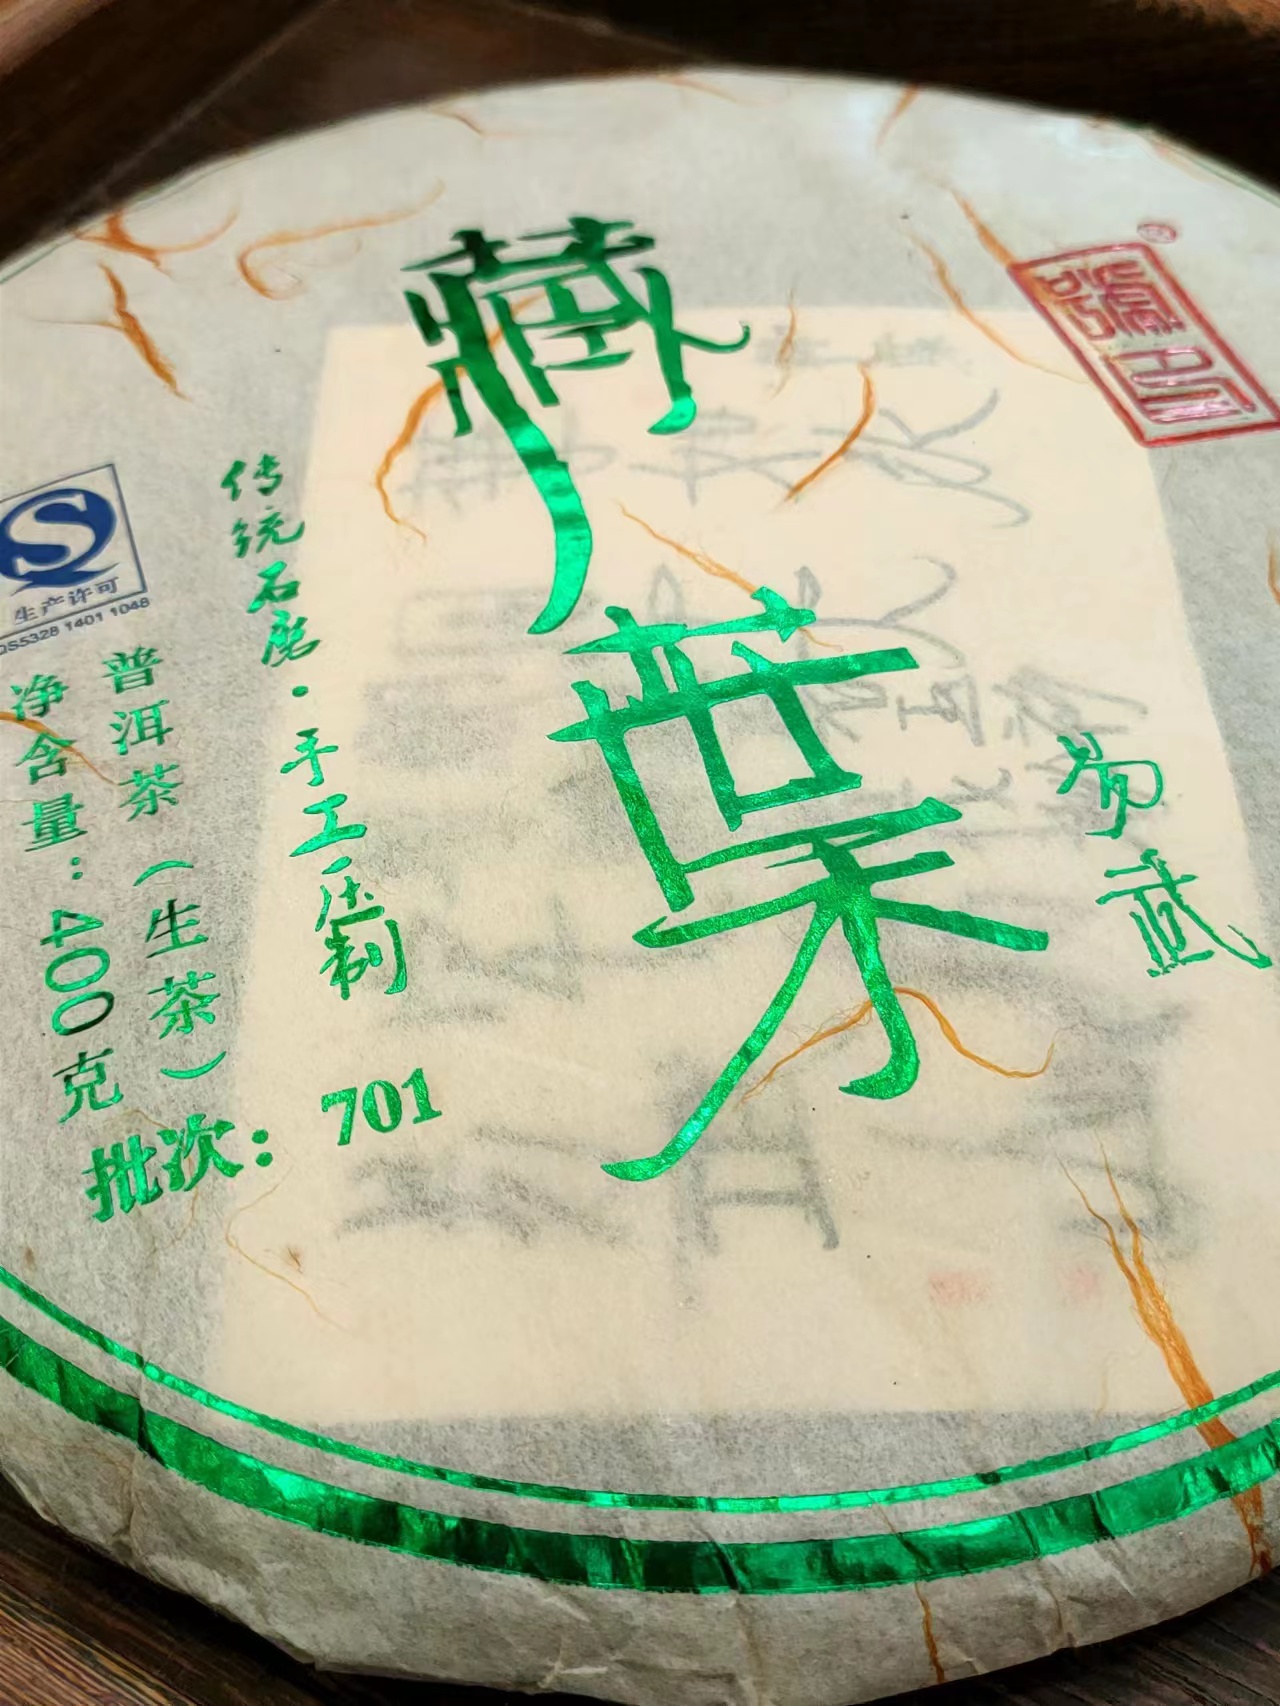 藏葉
易武
传统石磨·手工压制
生产许可
QS5328 1401 1048
普洱茶(生茶)
净含量:400克
批次:701